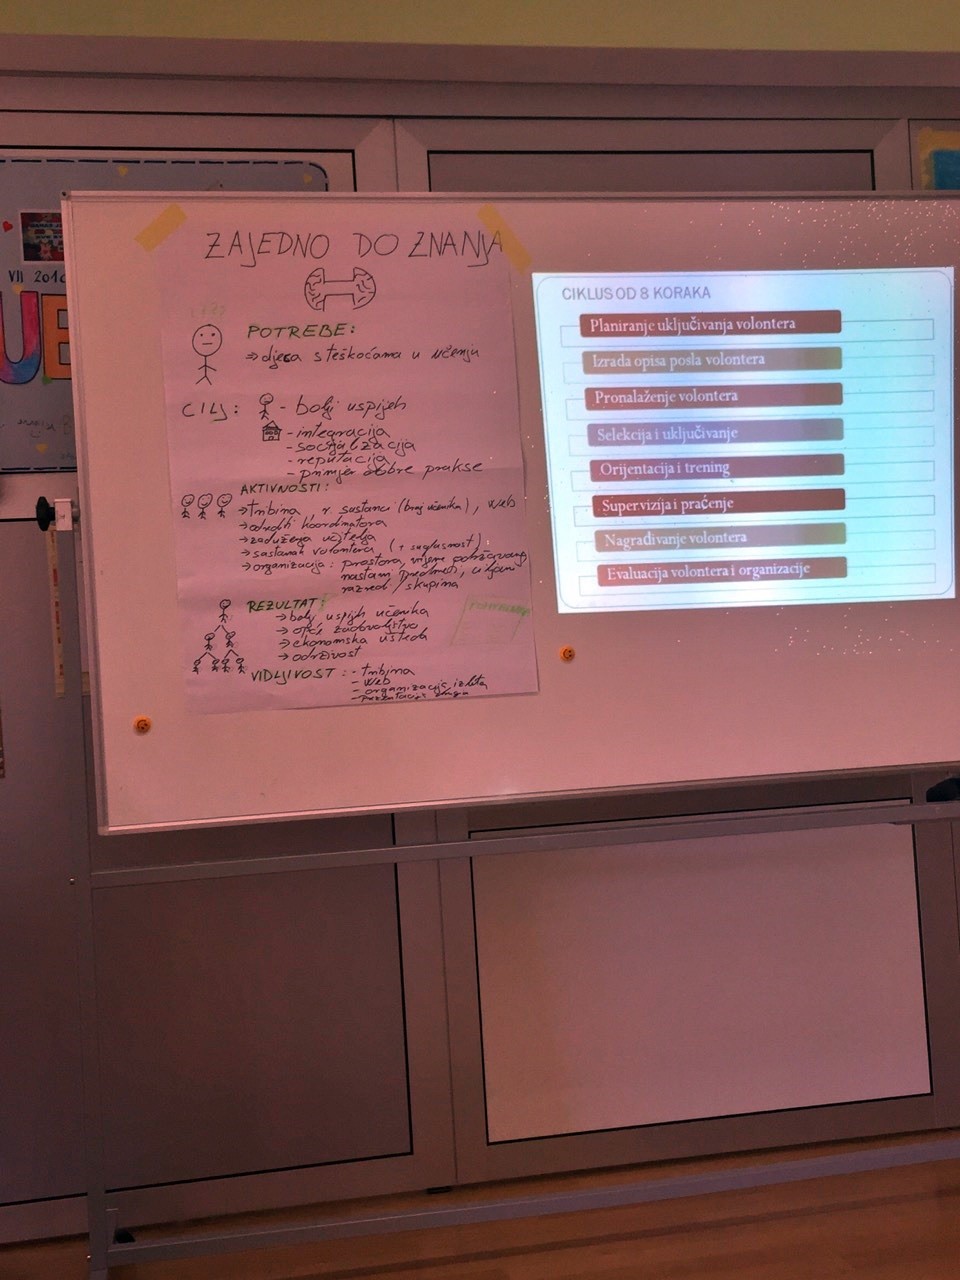 VII 2016
UB
ZAJEDNO DO ZNANJA
POTREBE:
→ djeca s teškoćama u učenju
CILJ: - bolji uspijeh
- integracija
- socijalizacija
- reputacija
- primjer dobre prakse
AKTIVNOSTI:
→ tribina, r. sastanci (broj učenika), web
→ odrediti koordinatora
→ zaduženja učitelja
→ sastanak volontera (+ suglasnost)
→ organizacija: prostora, vrijeme održavanja
nastavni predmeti, ciljani
razred/skupina
REZULTAT:
→ bolji uspijeh učenika
→ opće zadovoljstvo
→ ekonomska ušteda
→ održivost
VIDLJIVOST: - tribina
- web
- organizacija izleta
- prezentacija
CIKLUS OD 8 KORAKA
Planiranje uključivanja volontera
Izrada opisa posla volontera
Pronalaženje volontera
Selekcija i uključivanje
Orijentacija i trening
Supervizija i praćenje
Nagrađivanje volontera
Evaluacija volontera i organizacije